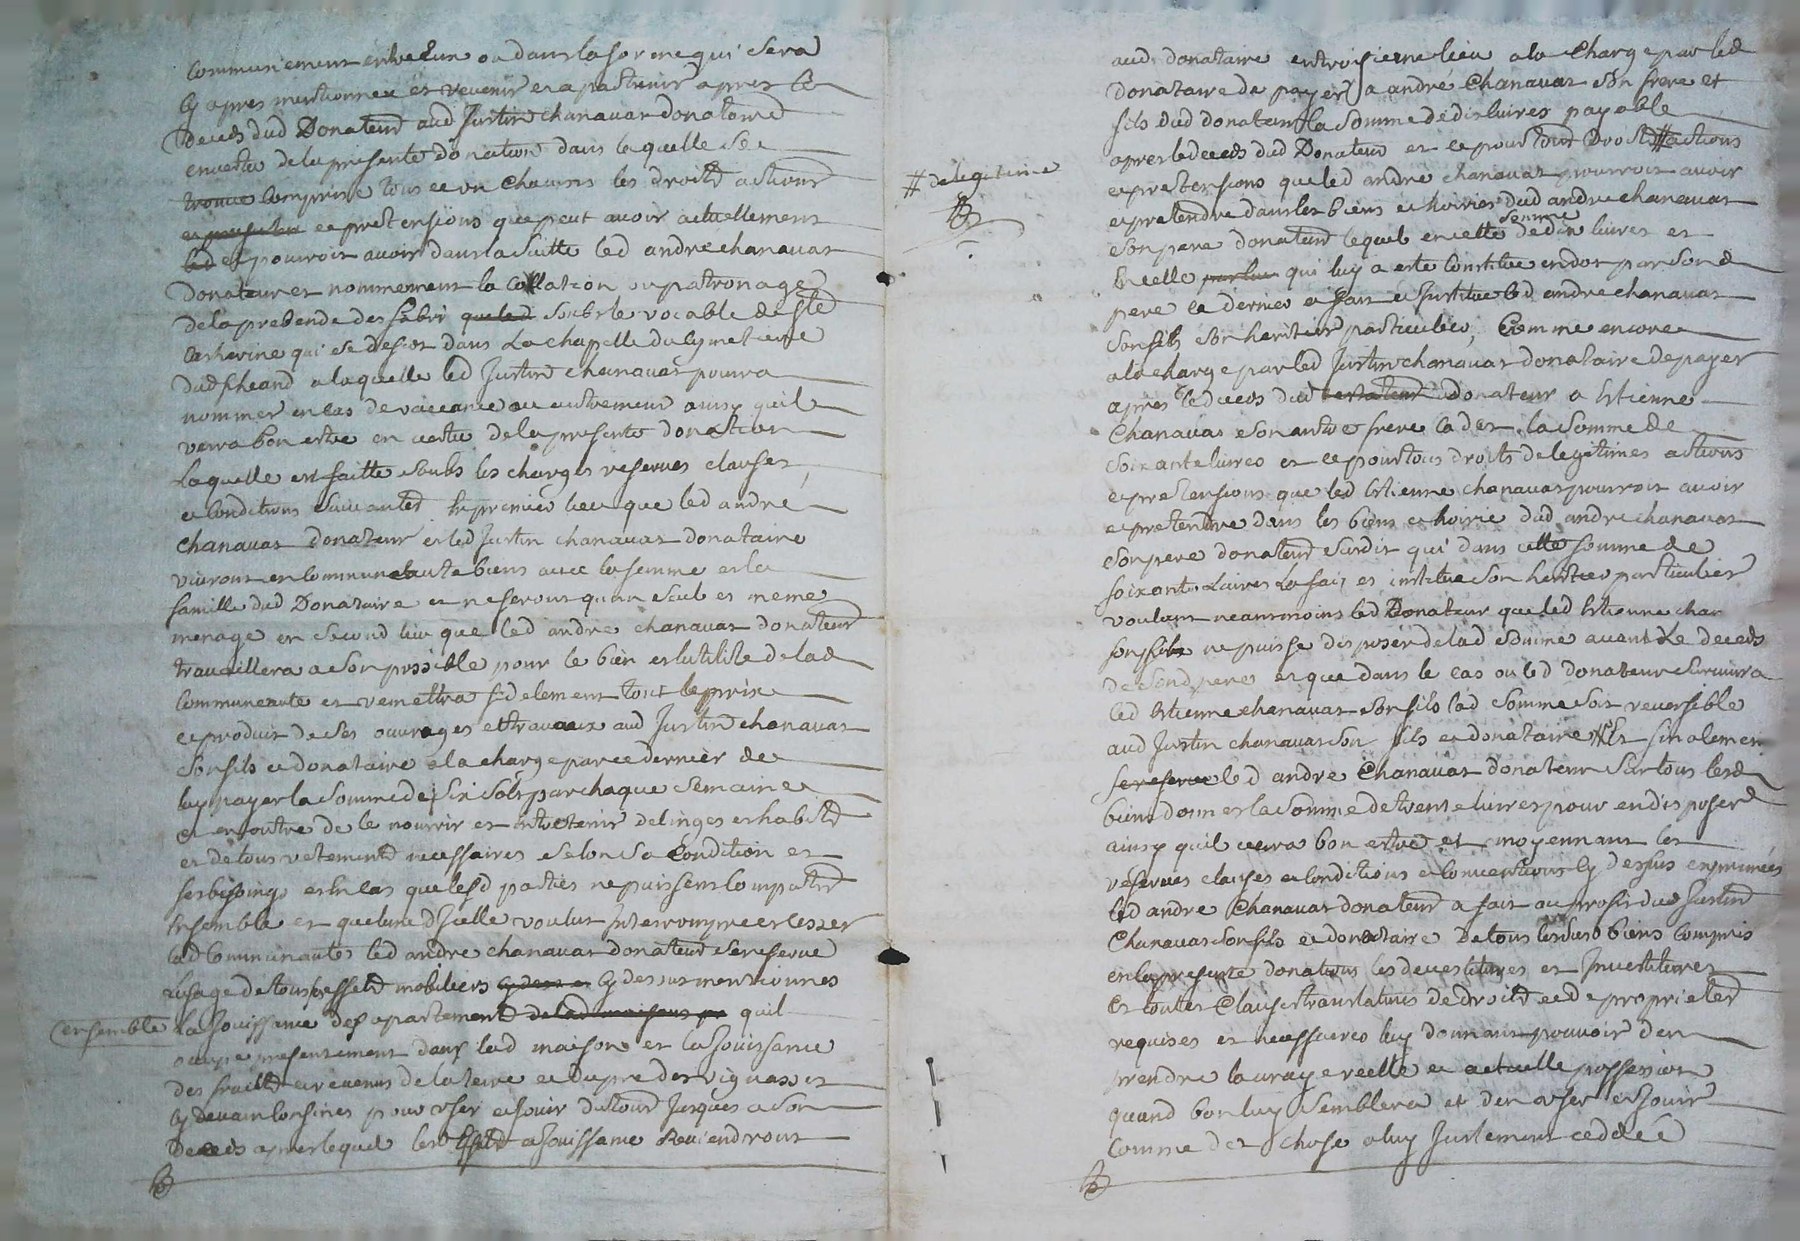 communement entre eux ou dans la forme qui sera
cy apres mentionnee et revenir et apartenir apres le
deceds dud Donateur aud Justin chanavas donataire
en vertu de la presente donation dans laquelle se
trouve comprins tous et un chacuns les droits actions
et pretensions que peut avoir actuellement
led et pourroit avoir dans la suitte led andre chanavas
donateur et nommement la collation ou patronage
de la prebende des fabri que led soubs le vocable de Ste
Catherine qui se desert dans La chapelle du cymetiere
dud a laquelle led Justin chanavas pourra
nommer en cas de vaccance ou autrement ainsy quil
verra bon estre en vertu de la presente donation
Laquelle est faitte soubs les charges reserves clauses
et conditions suivantes En premier lieu que led andré
chanavas donateur et led Justin chanavas donataire
vivront en communauté de biens avec la femme et la
famille dud Donataire et ne feront qu'un seul et meme
menage en second lieu que led andré chanavas donateur
travaillera a son possible pour le bien et lutilite de lad
communeauté et remettra fidelement tout le prix
et produit de ses ouvrages et travaux aud Justin chanavas
son fils et donataire a la charge par ce dernier de
luy payer la somme de six sols par chaque semaine
et en outre de le nourrir et entretenir de linges et habits
et de tous vetements necessaires selon sa condition et
ses besoing et en cas que lesd parties ne puissent compatir
ensemble et que lune dJcelle voulut interrompre et cesser
lad communauté led andré chanavas donateur se reserve
lusage de tous les effets mobiliers cy dessus mentionnes
ensemble la Jouissance des apartements de lad maison quil
occupe presentement dans lad maison et la Jouissance
des fruits et revenus de la terre et du pre des vignasses
cy devant confines pour user et jouir du tout Jusques a son
deceds apres lequel les effets et Jouissance Reviendront
# de legitime
aud donataire en troisieme lieu a la charge par led
donataire de payer a andré chanavas son frere et
fils dud donateur la somme de dix livres payable
apres le deceds dud Donateur et ce pour tous Droits # actions
et pretensions que led andré chanavas pourroit avoir
et pretendre dans les biens et hoiries dud andre chanavas
son pere donateur lequel en cette somme de dix livres et
en celle qui luy a esté constitué en dot par son d
pere ce dernier a fait et Justitue led andre chanavas
son fils son heritier particulier, Comme encore
a la charge par led Justin chanavas donataire de payer
apres le deceds dud testateur donateur a Etienne
Chanavas son autre frere cadet la somme de
soixante livres et ce pour tous droits de legitimes actions
et pretensions que led Etienne chanavas pourroit avoir
et pretendre dans les biens et hoirie dud andre chanavas
son pere donateur susdit qui dans cette somme de
soixante Livres La fait et institue son heritier particulier
voulant neantmoins led Donateur que led Etienne chan
son fils ne puisse disposer de lad somme avant Le deceds
de son d pere et que dans le cas ou led donateur survivra
led Etienne chanavas son fils lad somme soit reversible
aud Justin chanavas son fils et donataire Et finalement
se reserve led andré Chanavas donateur sur tous lesd
biens donnes la somme de trente livres pour en disposer
ainsy quil verra bon estre et moyennant les
reserves clauses et conditions et conventions cy dessus exprimées
led andre Chanavas donateur a fait au profit dud Justin
Chanavas son fils et donataire de tous lesdits biens compris
en la presente donation les devestitures et Investitures
Et toutes Clauses translatives de droits et de proprietes
requises et necessaires luy donnant pouvoir den
prendre la vraye reelle et actuelle possession
quand bon luy semblera et den user et jouir
comme des chose a luy Justement cedéé